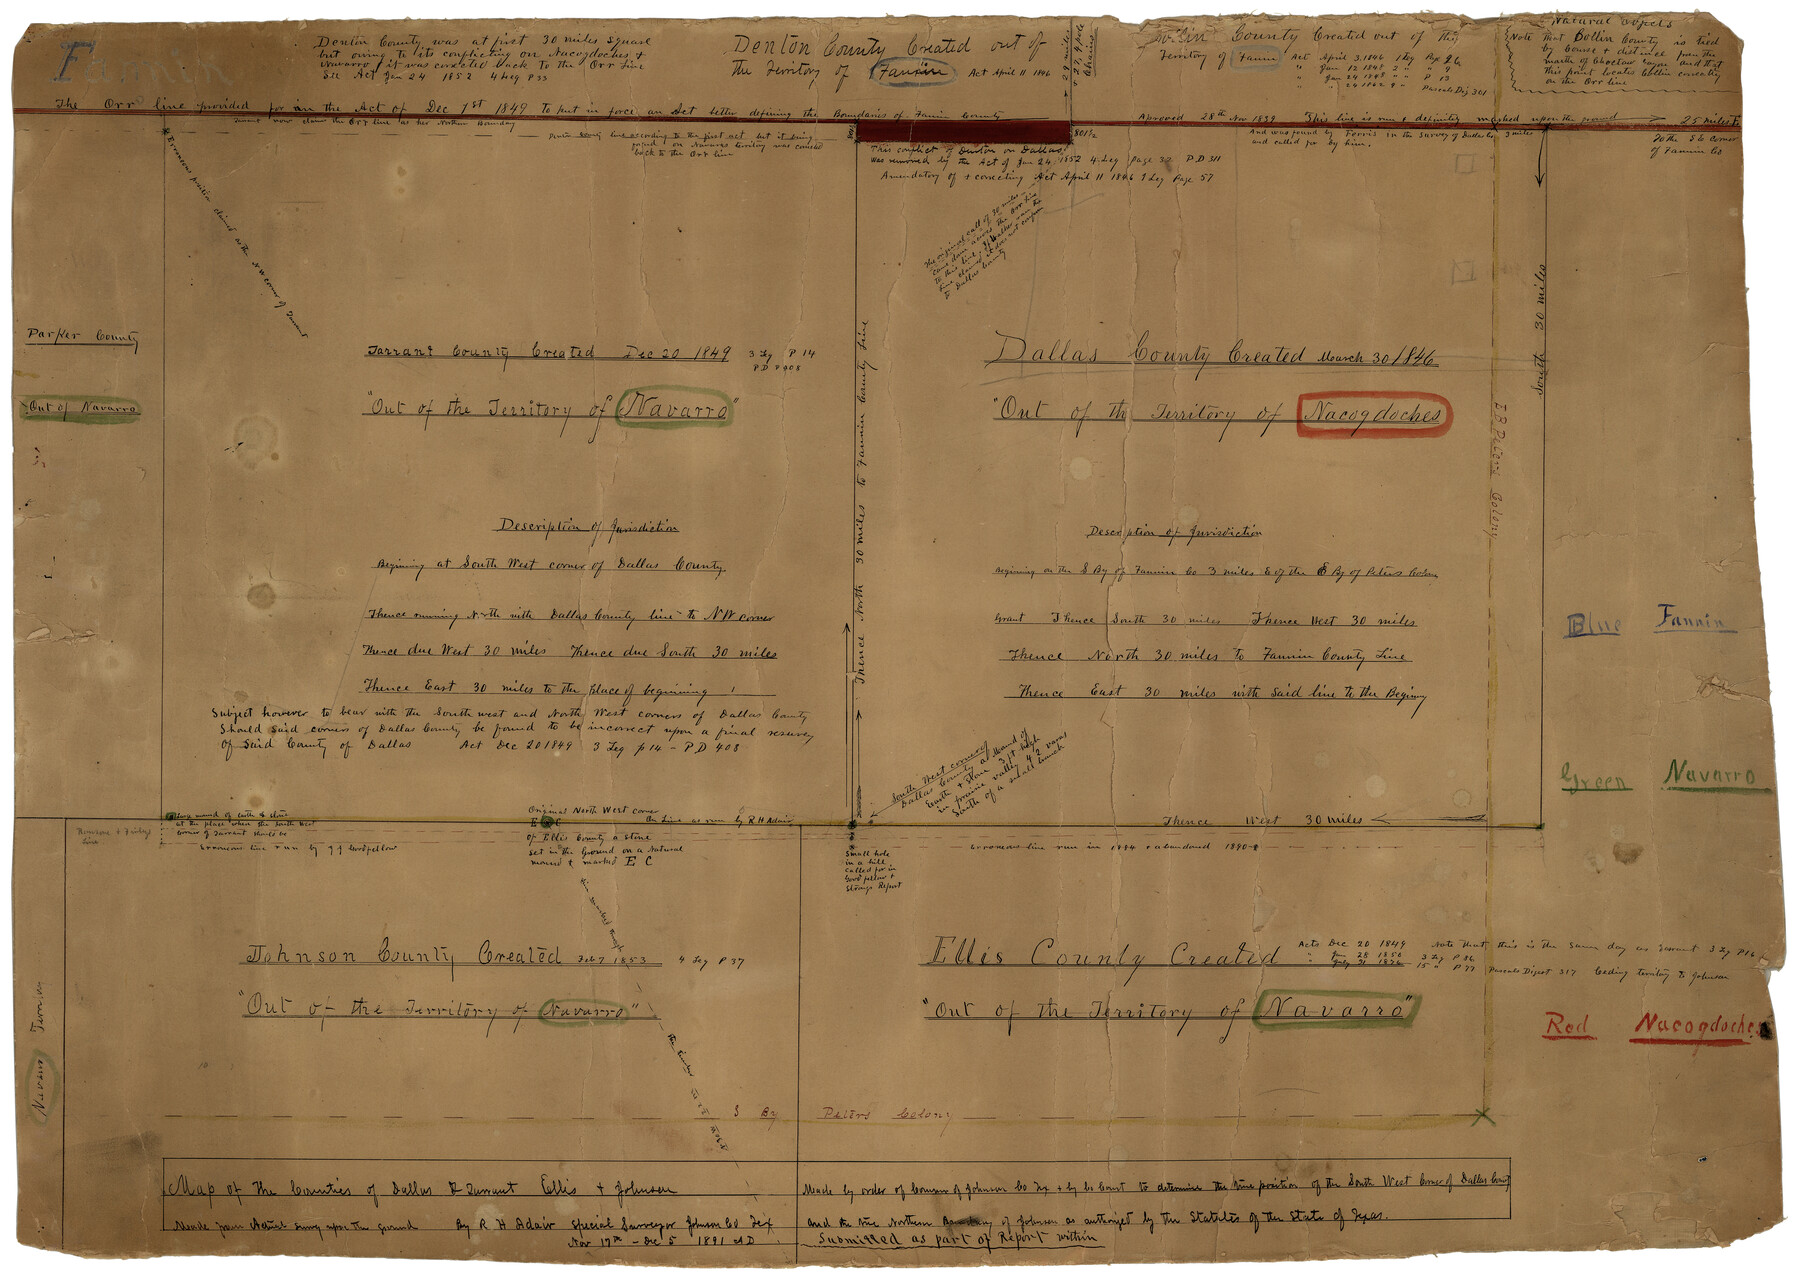 Fannin
Denton County was at first 30 miles square
but owing to its conflicting on Nacogdoches &
Navarro it was corected back to the Orr Line
See Act Jan 24 1852 4 Leg P 33
Denton County Created out of
the Territory of Fannin Act April 11 1846
29 miles
& 27.4 pole
Chains
Collin County Created out of the
Territory of Fannin Act April 3, 1846 1 Leg Page 26
" Jan 12 1848 2 " " 9
" Jan 24 1848 " " P 13
Pascals Dig 301
Natural Objects
Note that Collin County is tied
by Course & distance from the
mouth of Choctaw bayou and that
this point locates Collin correctly
on the Orr line
The Orr line provided for in the Act of Dec 1st 1849 to put in force an Act better defining the Boundaries of Fannin County Aproved 28th Nov 1839 This line is run & definitely marked upon the ground 25 miles to
the S E corner
of Fannin Co
Tarrant now claims the Orr line as her Northern Boundary
back to the Orr line
801½
And was found by Forvis in the Survey of Dallas Co, 3 miles
and called for by him.
This conflict of Denton on Dallas
was removed by the Act of Jan 24, 1852 4 Leg Page 32 P.D 311
Amendatory of & correcting Act April 11 1846 1 Leg Page 57
Erroneous position claimed as the N W corner of Tarrant
The original call of 30 miles
to Dallas County
Parker County
Out of Navarro
Tarrant County Created Dec 20 1849 3 Leg P 14
P D P 408
"Out of the Territory of Navarro"
Dallas County Created March 30 1846
"Out of the Territory of Nacogdoches
Thence North 30 miles to Fannin County Line
South 30 miles
Peters Colony
Description of Jurisdiction
Beginning at South West corner of Dallas County
Thence running North with Dallas County line to N W corner
Thence due West 30 miles Thence due South 30 miles
Thence East 30 miles to the place of beginning
Subject however to bear with the South west and North West corners of Dallas County
Should said corners of Dallas County be found to be incorrect upon a final resurvey
of Said County of Dallas Act Dec 20 1849 3 Leg p 14 - P D 408
Description of Jurisdiction
Beginning on the S By of Fannin Co 3 miles E of the E By of Peters Colony
Grant Thence South 30 miles Thence West 30 miles
Thence North 30 miles to Fannin County Line
Thence East 30 miles with Said line to the Beginning
Blue Fannin
Green Navarro
Red Nacogdoches
South West corner of
Dallas County a Mound of
Earth & Stone 3 ft high
in prairie valley 42 varas
South of a small branch
Thence West 30 miles
at the place where the South West
corner of Tarrant should be
Erroneous line run by J J Goodfellow
Original North West corner
E C On Line as run by R H Adair
of Ellis County a Stone
Set in the Ground on a Natural
mound & marked E C
Small hole
in a hill
called for in
Goodfellow &
Strongs Report
Erroneous line run in 1884 & abandoned 1890
Johnson County Created Feb 7 1853 4 Leg P 37
"Out of the Territory of Navarro"
Ellis County Created Acts Dec 20 1849 Note that this is the same day as Tarrant 3 Leg P 16
Pascals Digest 317 Ceding territory to Johnson
"Out of the Territory of Navarro"
Navarro
S By Peters Colony
Map of the Counties of Dallas & Tarrant Ellis & Johnson
Made from Actual survey upon the ground By R H Adair Special Surveyor Johnson Co Tex
Nov 17th - Dec 5 1891 A D
Made by order of Comrs of Johnson Co Tex & by Co Court to determine the true position of the South West Corner of Dallas County
And the true Northern Boundary of Johnson as authorized by the Statutes of the State of Texas.
Submitted as part of Report within